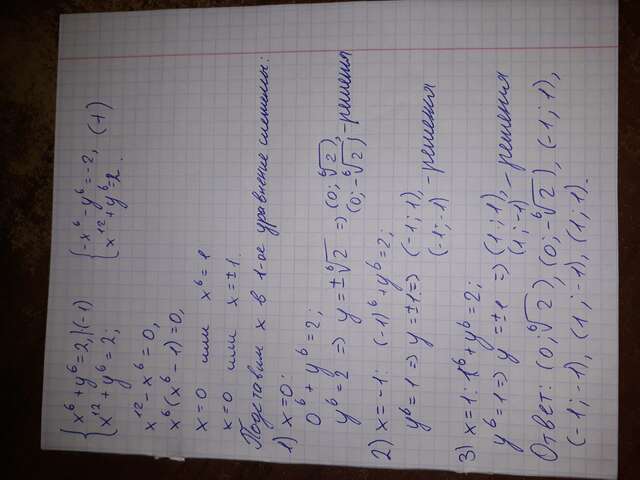 { x⁶ + y⁶ = 2, |(-1)   { -x⁶ - y⁶ = -2,
{ x¹² + y⁶ = 2;   { x¹² + y⁶ = 2. (+)
x¹² - x⁶ = 0,
x⁶(x⁶ - 1) = 0,
x = 0 или x⁶ = 1
x = 0 или x = ±1.
Подставим x в 1-ое уравнение системы:
1) x = 0:
0⁶ + y⁶ = 2;
y⁶ = 2 => y = ±⁶√2 => (0; ⁶√2),
(0; -⁶√2) - решения
2) x = -1: (-1)⁶ + y⁶ = 2;
y⁶ = 1 => y = ±1 => (-1; 1),
(-1; -1) - решения
3) x = 1: 1⁶ + y⁶ = 2;
y⁶ = 1 => y = ±1 => (1; 1),
(1; -1) - решения
Ответ: (0; ⁶√2), (0; -⁶√2), (-1; 1),
(-1; -1), (1; -1), (1; 1).